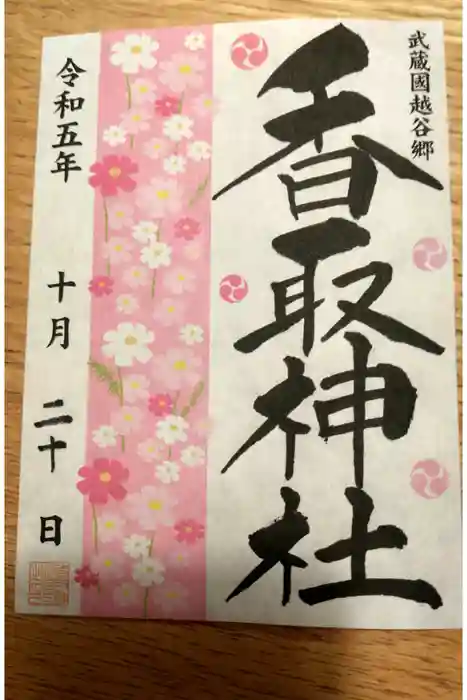 武蔵國越谷郷
香取神社
令和五年 十月 二十日